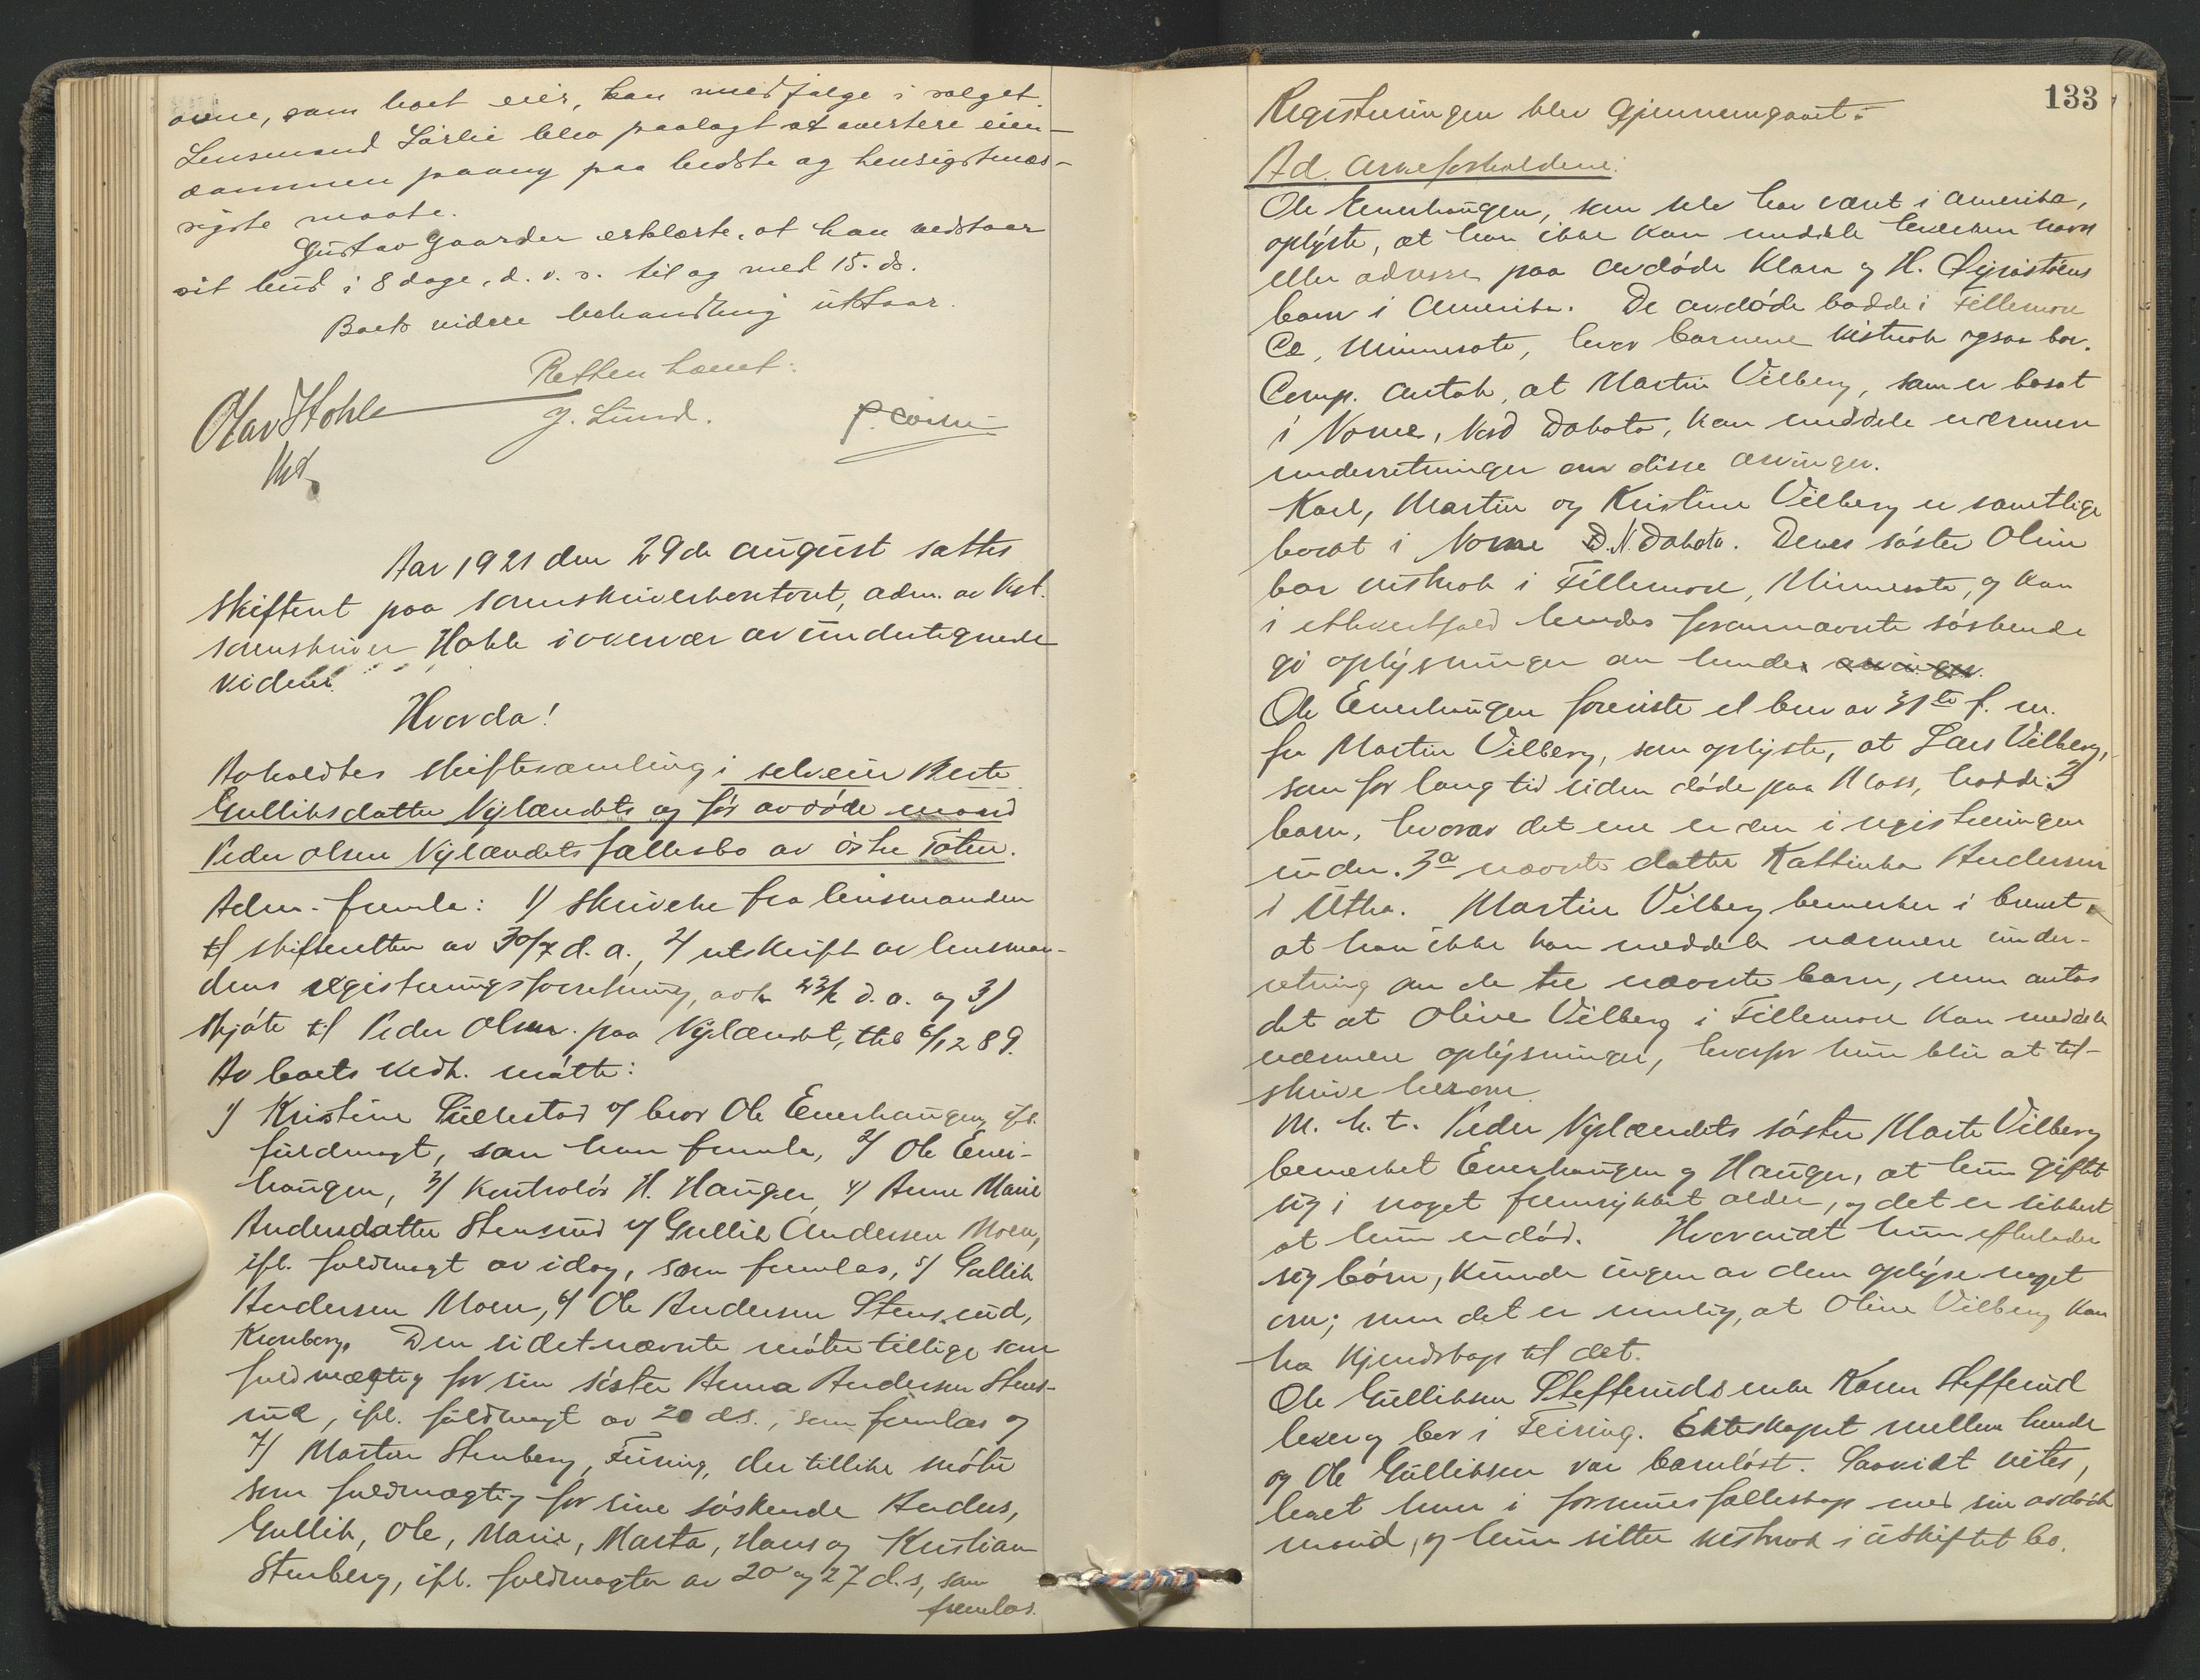 ovne, som boet eier, kan medfølge i salget.
Lensmand Sørlie blev paalagt at avertere eien-
dommen paany paa bedste og hensigtmæs-
sigste maate.
Gustav Gaarder erklærte, at han vedstaar
sit bud i 8 dage, d. v. s. til og med 15. ds.
Boets videre behandling utstaar.
Retten hævet:
Olav Hohle
kst.
J. Lund.
P. Sørlie
Aar 1921 den 29de august sattes
skifteret paa sorenskriverkontoret, adm. av kst.
sorenskriver Hohle i overvær av undertegnede
vidner.
Hvorda!
Avholdtes skiftesamling i selveier Berte
Gulliksdatter Nylændets og før avdøde mand
Peder Olsen Nylændets fællesbo av østre Toten.
Adm. fremla: 1/ Skrivelse fra lensmanden
til skifteretten av 30/7 d. a., 2/ utskrift av lensman-
dens registreringsforretning, avh. d. a. og 3/
skjøte til Peder Olsen paa Nylændet, thl. 6/12 89.
Av boets vedk. møtte:
1/ Kristine Sillestad v/ bror Ole Enerhaugen, ifl.
fuldmagt, som han fremla, 2/ Ole Ener-
haugen, 3/ Kontrolør H. Haugen, 4/ Anne Marie
Andersdatter Stensrud v/ Gullik Andersen Moen,
ifl. fuldmagt av idag, som fremlas, 5/ Gullik
Andersen Moen, 6/ Ole Andersen Stensrud,
Kronberg. Den sidstnævnte møter tillige som
fuldmægtig for sin søster Anna Andersen Stens-
rud, ifl. fuldmagt av 20 ds., som fremlas og
7/ Martin Stenberg, Feiring, der tillike møter
som fuldmægtig for sine søskende Anders,
Gullik, Ole, Marie, Marta, Hans og Kristian
Stenberg, ifl. fuldmagter av 20 og 27 d. s, som
fremlas.
133
Registreringen blev gjennemgaaet:
Ad. arveforholdene:
Ole Enerhaugen, som selv har været i Amerika,
oplyste, at han ikke kan meddele hverken navn
eller adresse paa avdøde Klara og H. Øjrastøens
barn i Amerika. De avdøde bodde i Fillemore
Co, Minnesota, hvor barnene vistnok ogsaa bor.
Comp. antok, at Martin Vilberg, som er bosat
i Nome, Nord Dakota, kan meddele nærmere
underretninger om disse arvinger.
Karl, Martin og Kristine Vilberg er samtlige
bosat i Nome N. Dakota. Deres søster Oline
bor vistnok i Fillemore, Minnesota, og kan
i ethvertfald hendes forannævnte søskende
gi oplysninger om hende arvinger.
Ole Enerhaugen foreviste et brev av 31te f. m.
fra Martin Vilberg, som oplyste, at Lars Vilberg,
som for lang tid siden døde paa Moss, hadde 3
barn, hvorav det ene er den i registreringen
under 3a nævnte datter Kathinka Andersen
i Utha. Martin Vilberg bemerker i brevet,
at han ikke kan meddele nærmere under-
retning om de tre nævnte barn, men antas
det at Oline Vilberg i Fillemore kan meddele
nærmere oplysninger, hvorfor hun blir at til-
skrive herom.
M. h. t. Peder Nylændets søster Marte Vilberg
bemerket Enerhaugen og Haugen, at hun giftet
sig i noget fremrykket alder, og det er sikkert
at hun er død. Hvorvidt hun efterlader
sig børn, kunde ingen av dem oplyse noget
om; men det er mulig, at Oline Vilberg kan
ha kjendskap til det.
Ole Gulliksen Stefferuds enke Karen Stefferud
lever og bor i Feiring. Ekteskapet mellem hende
og Ole Gulliksen var barnløst. Saavidt vites,
levet hun i formuesfællesskap med sin avdøde
mand, og hun sitter vistnok i uskiftet bo.